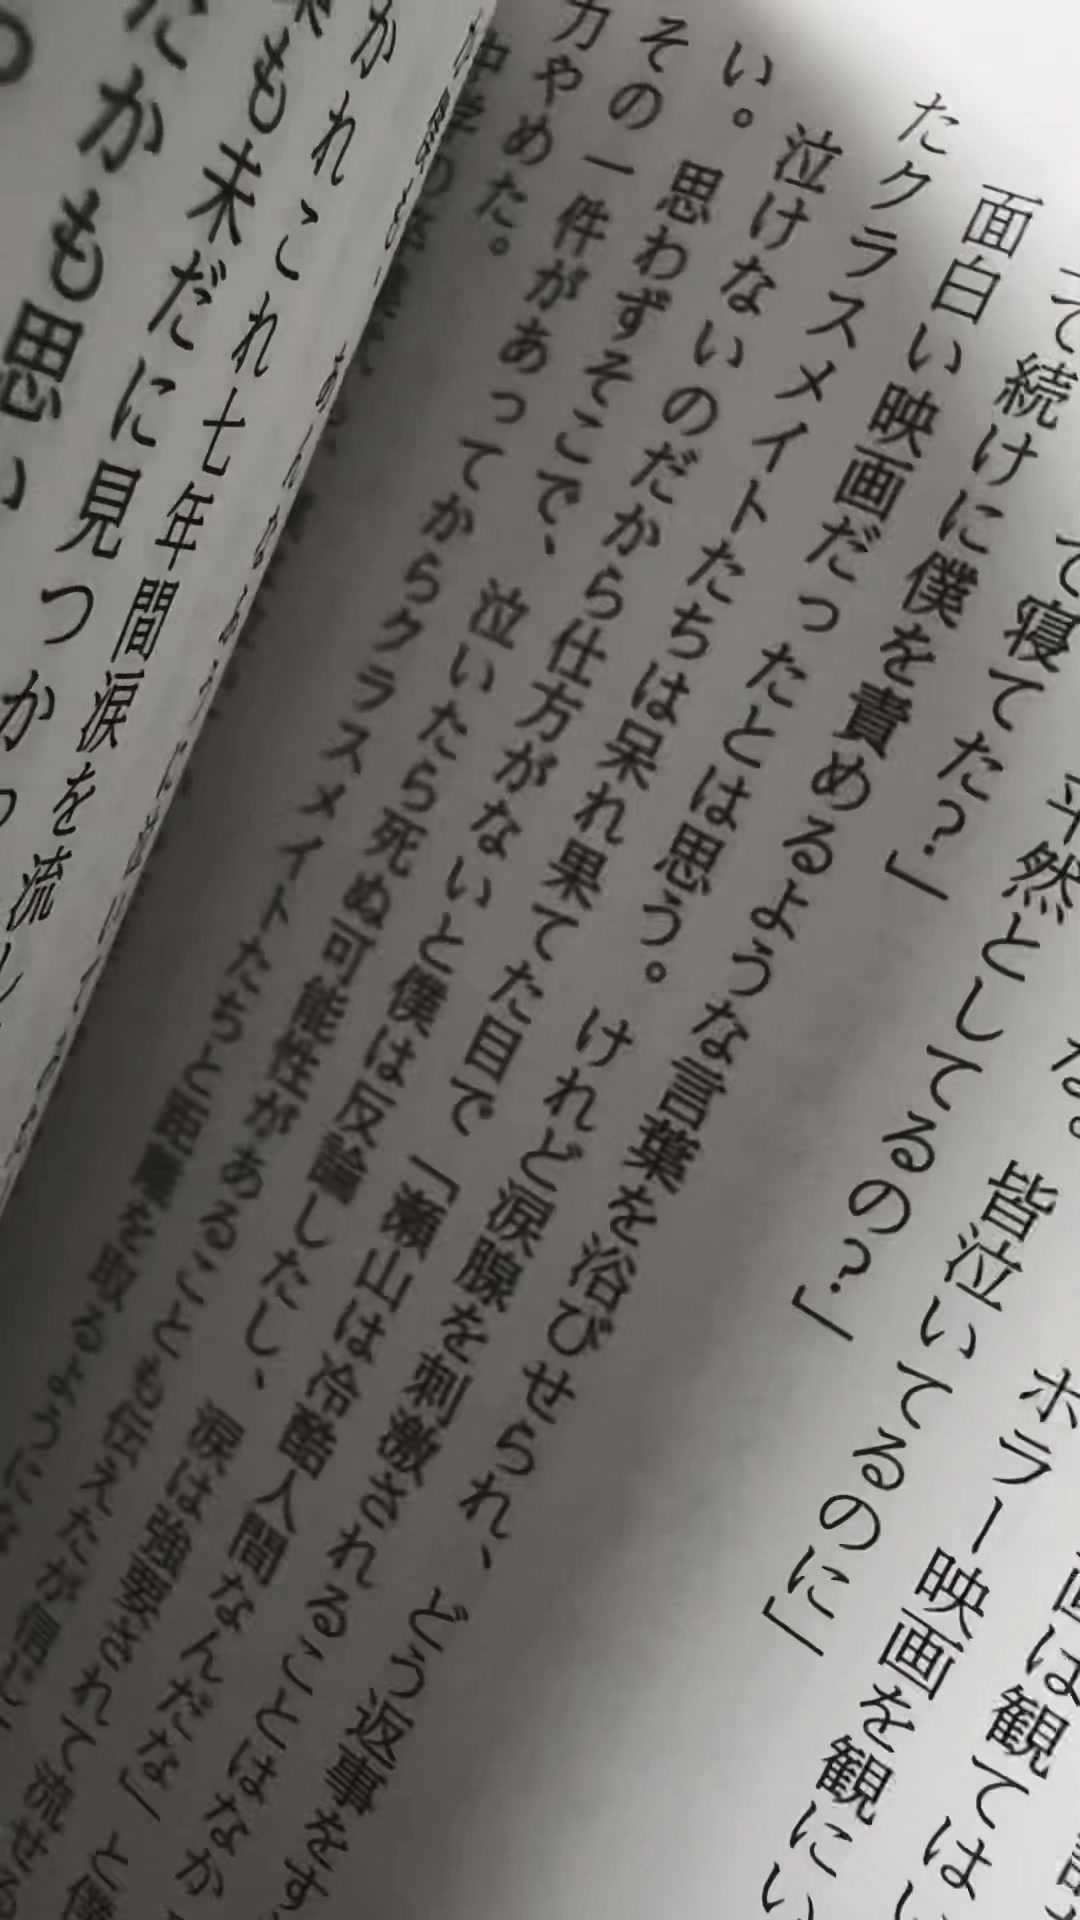 画は観てはい
ホラー映画を観にい
皆泣いてるのに」
平然としてるの?」
て寝てた?」
って続けに僕を責めるような言葉を浴びせられ、どう返事をす
面白い映画だったとは思う。けれど涙腺を刺激されることはなか
たクラスメイトたちは呆れ果てた目で「瀬山は冷酷人間なんだな」と僕
泣けないのだから仕方がないと僕は反論したし、涙は強要されて流せる
い。思わずそこで、泣いたら死ぬ可能性があることも伝えたが信じ
その一件があってからクラスメイトたちと距離を取るようにな
力やめた。
かれこれ七年間涙を流し
も未だに見つかっ
だかも思い